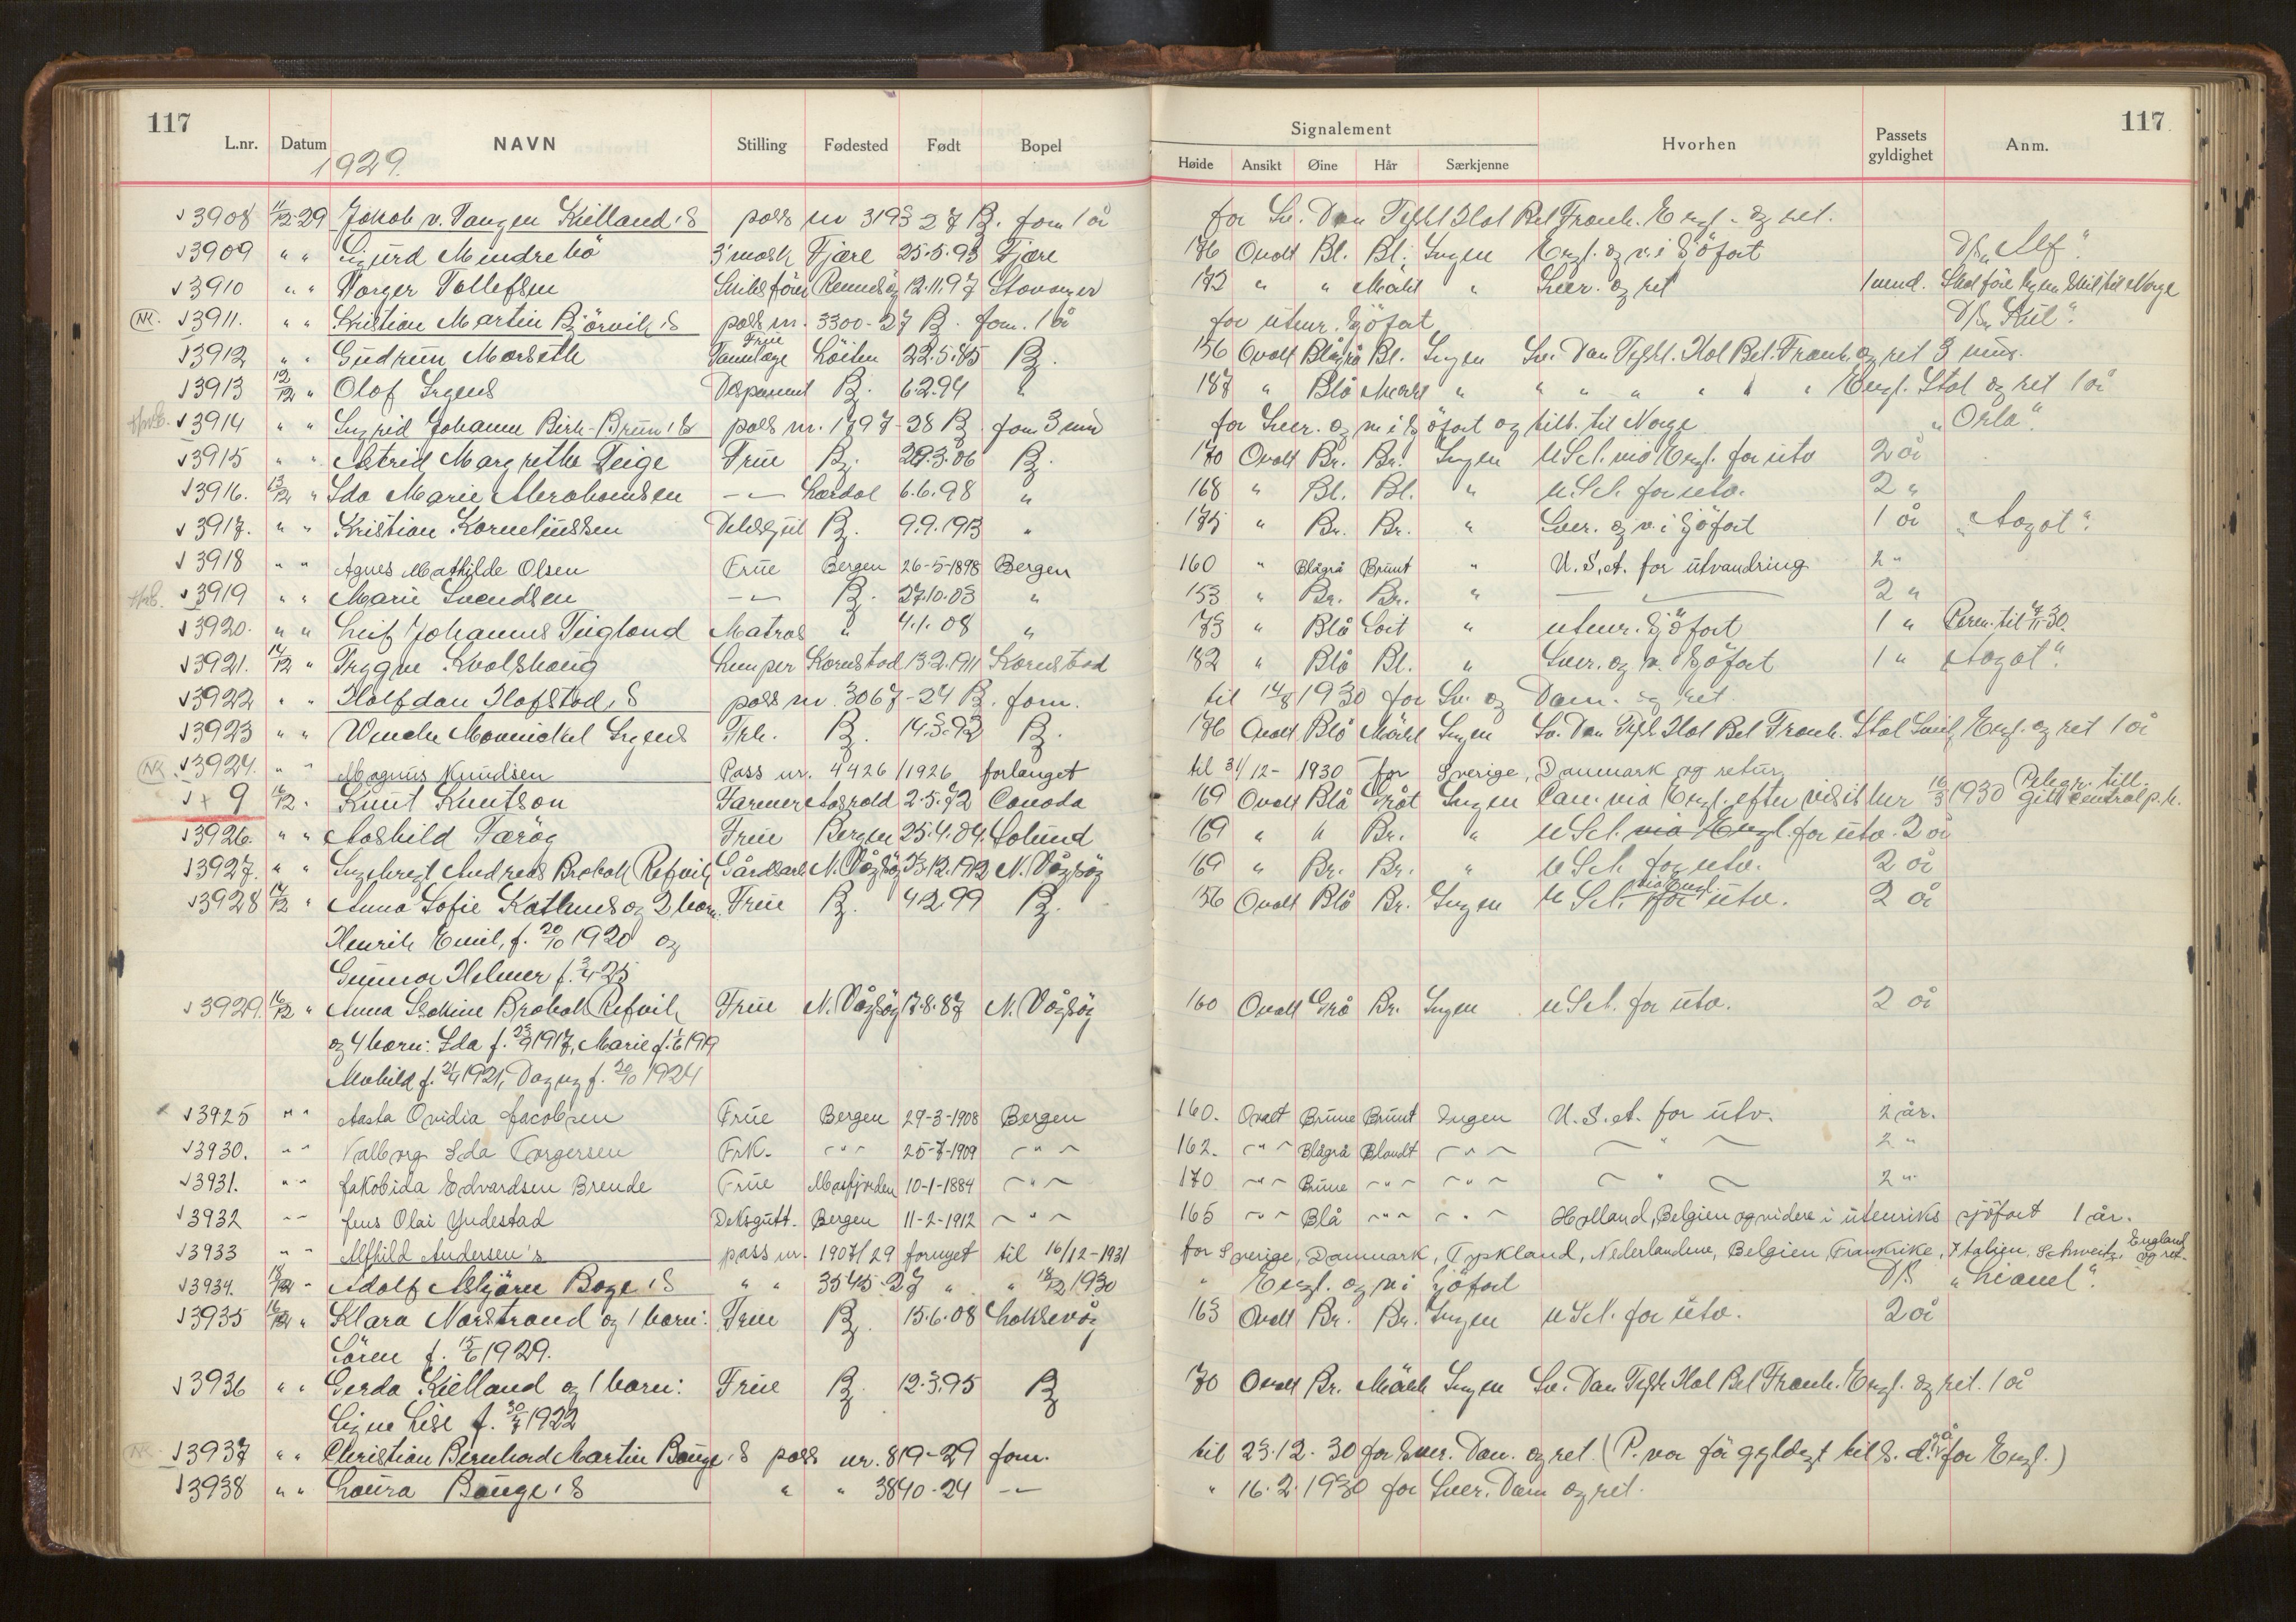 117 117
Signalement
L.nr. Datum NAVN Stilling Fødested Født Bopel Høide Ansikt Øine Hår Særkjenne Hvorhen Passets gyldighet Anm.
1929.
3908 11/12-29 Jakob v. Tangen Kielland's pass nr 3193 27 B. forn 1 år for Sv. Dan Tyskl Hol Bel Frank. Engl. og ret.
3909 " " Sigurd Mindrebö 3' mask Fjære 25.5.93 Fjære 176 Ovalt Bl. Bl. Ingen Engl. og v. i Sjöfart D/S "Alf".
3910 " " Torger Tollefsen Skibsförer 12.11.97 Stavanger 173 " " Mörkt " Sver. og ret 1 mnd. Skal före hjem skib til Norge
NK. 3911. " " Kristian Martin Björvik's pass nr. 3300-27 B. forn. 1 år for utenr. Sjöfart D/S "Rut".
3912 " " Gudrun Marseth Frue Tannlæge Löiten 22.5.85 B. 156 Ovalt Blågrå Bl. Ingen Sv. Dan Tyskl. Hol Bel. Frank. og ret 3 mnd.
3913 12/12 " Olaf Irgens Disponent B. 6.2.94 " 187 " Blå Mörkt " " " " " " " Engl. Ital og ret 1 år
3914 " " Ingrid Johanne Birk-Bruun's pass nr. 1797-28 B forn 3 mnd for Sver. og v. i Sjöfart og tilb. til Norge "Orla".
3915 " " Astrid Margrethe Teige Frue B. 29.3.06 B. 170 Ovalt Br. Br. Ingen USA. via Engl. for utv 2 år
3916. 13/12 " Ida Marie Abrahamsen -"- Lærdal 6.6.98 " 168 " Bl. Bl. " USA. for utv. 2 "
3917. " " Kristian Korneliussen Deksgut B. 9.9.1913 " 175 " Br. Br. " Sver. og v. i Sjöfart 1 år "Aagot".
3918 " " Agnes Mathilde Olsen Frue Bergen 26-5-1898 Bergen 160 " Blågrå Brunt " U.S.A. for utvandring 2 "
3919 " " Marie Svendsen -"- B. 27.10.03 " 153 " Br. Br. " 2 "
3920. " " Leif Johannes Tugland Matros " 4.1.08 " 173 " Blå Sort " utenr. Sjöfart 1 "
3921. 14/12 " Trygve Kvalshaug Lemper Kornstad 13.2.1911 Kornstad 182 " Blå Bl. " Sver. og v. i Sjöfart 1 " Aagot".
3922 " " Halfdan Hafstad's pass nr. 3067-24 B. forn. til 14/8 1930 for Sv. og Dan. og ret.
3923 " " Wenche Mowinckel Irgens Frk. B. 14.3.92 B. 176 Ovalt Blå Mörkt Ingen Sv. Dan Tyskl Hol Bel Frank. Ital Sveits Engl. og ret 1 år
NK. 3924. " " Magnus Knudsen Pass nr. 4426/1926 forlænget til 31/12-1930 for Sverige, Danmark og retur
x 9 16/12. Knut Knutson Farmer Aasrald 2.5.72 Canada 169 Ovalt Blå Gråt Ingen Can. via Engl. efter visit her 16/3 1930
3926. " " Aashild Færöy Frue Bergen 25.4.04. Solund 169 " " Br. " USA. via Engl. for utv. 2 år
3927. " " Ingebrigt Andreas Brobakk Refvik Gårdsarb N. Vågsöy 23.12.1912 N. Vågsöy 169 " Br. Br. " USA for utv. 2 år
3928 17/12 " Anna Sofie Kathus og 2 barn. Frue B. 4.2.99 B. 156 Ovalt Blå Br. Ingen USA. via Engl. for utv. 2 år
Henrik Emil, f. 20/10 1920 og
Gunnar Helmer f. 3/4-25
3929. 16/12 " Anna Brobakk Refvik Frue N. Vågsöy 17.8.87 N. Vågsöy 160 Ovalt Grå Br. Ingen USA. for utv. 2 år
og 4 barn: Ida f. 1917, Marie f. 1919
f. 21/4 1921, Dagny f. 26/10 1924
3925 " " Aasta Ovidia Jacobsen Frue Bergen 29-3-1908 Bergen 160. Ovalt Brune Brunt Ingen U.S.A. for utv. 2 år.
3930. " " Valborg Ida Torgersen Frk. -"- 25-7-1909 -"- 162. -"- Blågrå Blondt -"- -"- 2 "
3931. " " Jakobida Edvardsen Brende Frue Masfjorden 10-1-1884 -"- 170 -"- Brune -"- -"- -"- 2 "
3932 " " Jens Olai Yndestad Deksgutt. Bergen 11-2-1912 -"- 165 -"- Blå -"- -"- Holland, Belgien og videre i utenriks sjöfart 1 år.
3933 " " Alfhild Andersen's pass nr. 1907/29 fornyet til 16/12-1931 for Sverige, Danmark, Tyskland, Nederlandene, Belgien, Frankrike, Italien, Schweitz, England og ret.
3934. 18/12 " Adolf Asbjörn Boge's " " 3545-27 " " 18/12 1930 " Engl. og v. i Sjöfart D/S "Lianel".
3935 16/12 " Klara Norstrand og 1 barn: Frue B. 15.6.08 Laksevåg 163 Ovalt Br. Br. Ingen USA. for utv. 2 år
Sören f. 15/6 1929.
3936 " " Gerda Kielland og 1 barn: Frue B. 12.3.95 B 170 Ovalt Br. Mörkt Ingen Sv. Dan Tyskl Hol Bel Frank. Engl. og ret. 1 år
Signe Lise f. 30/7 1922
NK. 3937 " " Christian Bernhard Martin Bauge's pass nr. 819-29 forn. til 23.12.30 for Sver. Dan. og ret. (P. var för gyldigt til s. d. for Engl.)
3938 " " Laura Bauge's " " 3840-24 -"- " 16.2.1930 for Sver. Dan og ret.